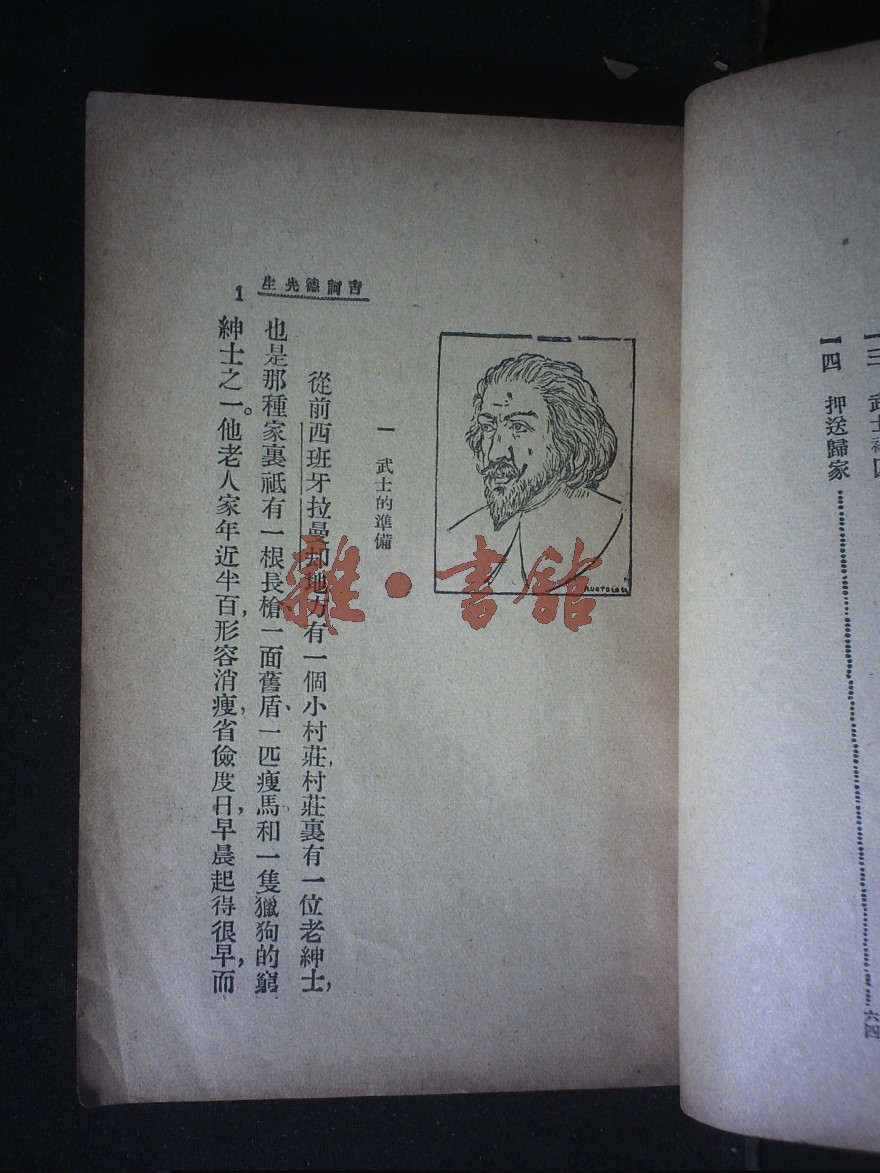 一四　押送歸家……六四
一　武士的準備
從前西班牙拉曼却地方有一個小村莊，村莊裏有一位老紳士，
也是那種家裏祇有一根長槍、一面舊盾、一匹瘦馬和一隻獵狗的窮
紳士之一。他老人家年近半百，形容消瘦，省儉度日，早晨起得很早，而
吉訶德先生
1
雜·書館